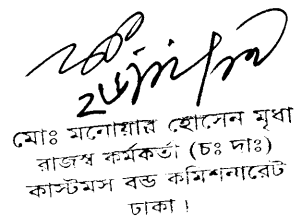 মোঃ মনোয়ার হোসেন মৃধা
রাজস্ব কর্মকর্তা (চঃ দাঃ)
কাস্টমস বন্ড কমিশনারেট
ঢাকা।